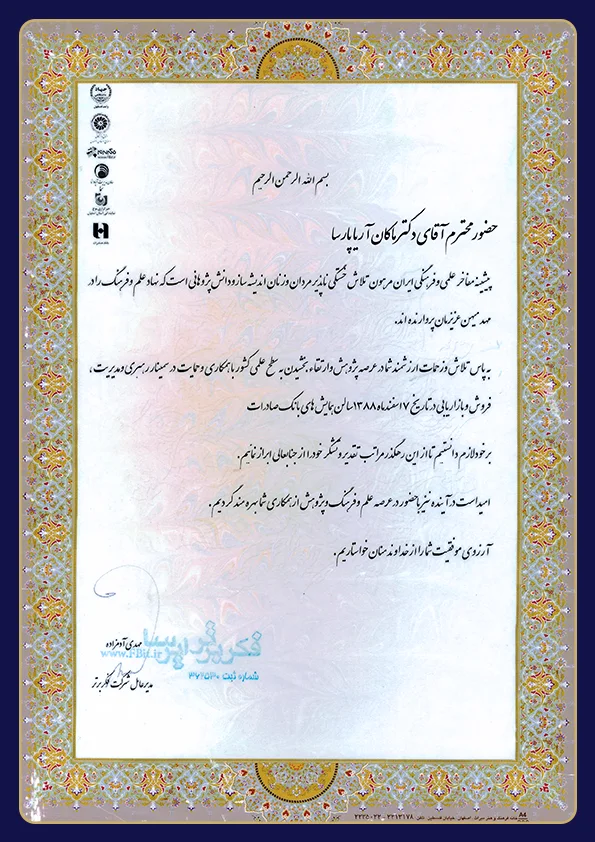 بسم الله الرحمن الرحیم
حضور محترم آقای دکتر ماکان آریا پارسا
پیشینه مفاخر علمی و فرهنگی ایران مرهون تلاش خستگی ناپذیر مردان و زنان اندیشه ساز و دانش پژوهانی است که نهاد علم و فرهنگ را در
مهد میهن عزیزمان پرورانده اند.
به پاس تلاش و زحمات ارزشمند شما در عرصه پژوهش و ارتقاء بخشیدن به سطح علمی کشور با همکاری و حمایت در سمینار رهبری و مدیریت ،
فروش و بازاریابی در تاریخ ۷ اسفند ماه ۱۳۸۸ سالن همایش های بانک صادرات
بر خود لازم دانستیم تا از این رهگذر مراتب تقدیر و تشکر خود را از جنابعالی ابراز نمائیم.
امید است در آینده نیز با حضور در عرصه علم و فرهنگ و پژوهش از همکاری شما بهره مند گردیم .
آرزوی موفقیت شما را از خداوند منان خواستاریم .
مهدی آدمزاده
مدیرعامل شرکت فکر برتر
فکر برتر پارسا
www.FBit.ir
شماره ثبت ۳۷۲۵۳۰
جهاد
بانک صادرات
A4